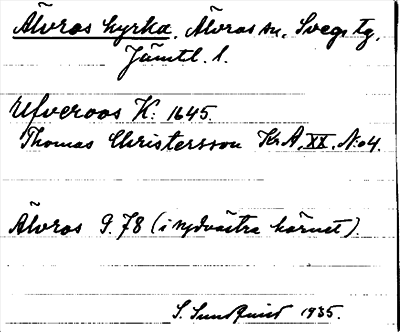 Älvros kyrka. Älvros sn, Svegs tg,
Jämtl. l.
Ufveroos K: 1645.
Thomas Christersson Kr. A. XX. No 4.
Älvros 9.78 (i sydvästra hörnet)
S. Sundquist 1935.